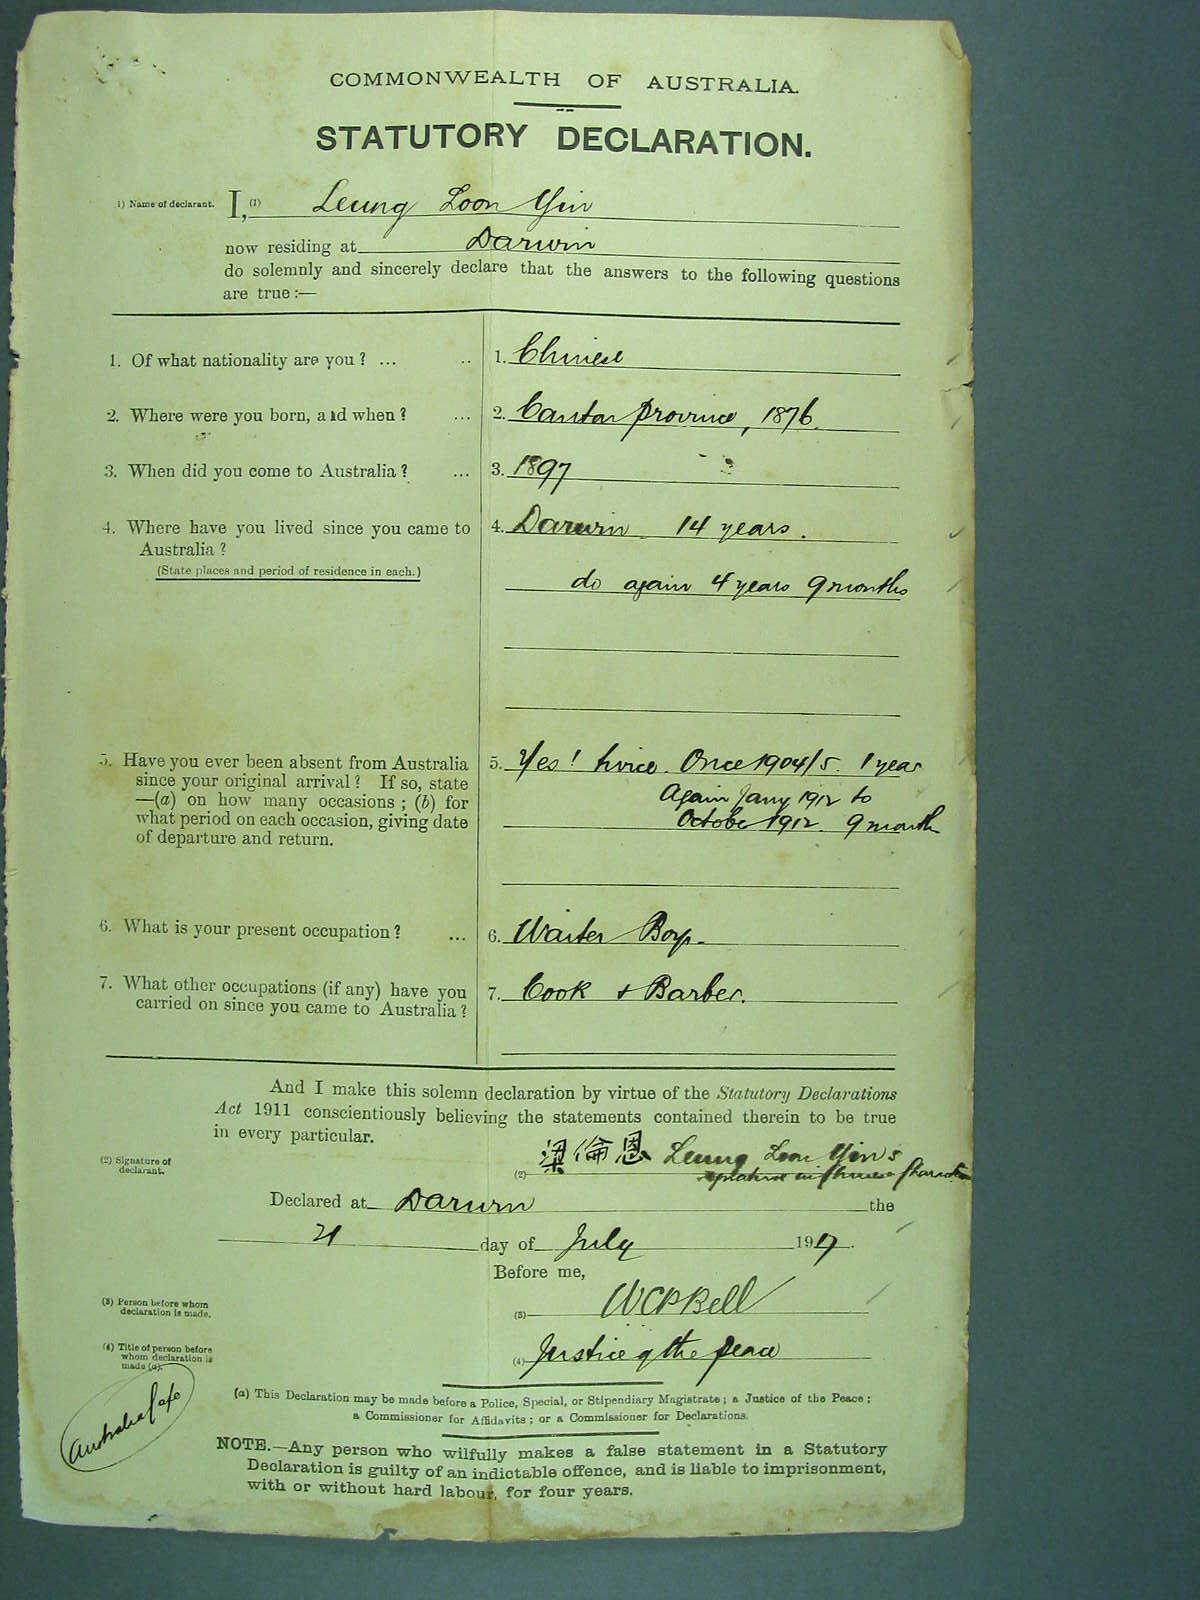 COMMONWEALTH OF AUSTRALIA.
STATUTORY DECLARATION.
1) Name of declarant. I, (1) Leung Loon Yin
now residing at Darwin
do solemnly and sincerely declare that the answers to the following questions
are true:—
1. Of what nationality are you? ... .. 1. Chinese
2. Where were you born, and when? ... 2. Canton province, 1876.
3. When did you come to Australia? ... 3. 1897
4. Where have you lived since you came to 4. Darwin 14 years.
Australia?
(State places and period of residence in each.) do again 4 years 9 months
5. Have you ever been absent from Australia 5. Yes! twice. Once 1904/5. 1 year
since your original arrival? If so, state
—(a) on how many occasions; (b) for Again Jany 1912 to
what period on each occasion, giving date October 1912. 9 month
of departure and return.
6. What is your present occupation? ... 6. Waiter Boy.
7. What other occupations (if any) have you 7. Cook & Barber.
carried on since you came to Australia?
And I make this solemn declaration by virtue of the Statutory Declarations
Act 1911 conscientiously believing the statements contained therein to be true
in every particular.
(2) Signature of
declarant.
(2) 梁倫恩 Leung Loon Yin's
signature in Chinese Character
Declared at Darwin the
21 day of July 1917.
Before me,
(3) Person before whom
declaration is made.
(3) WCPBell
(4) Title of person before
whom declaration is
made (a).
(4) Justice of the peace
Australia Cafe
(a) This Declaration may be made before a Police, Special, or Stipendiary Magistrate; a Justice of the Peace;
a Commissioner for Affidavits; or a Commissioner for Declarations.
NOTE.—Any person who wilfully makes a false statement in a Statutory
Declaration is guilty of an indictable offence, and is liable to imprisonment,
with or without hard labour, for four years.